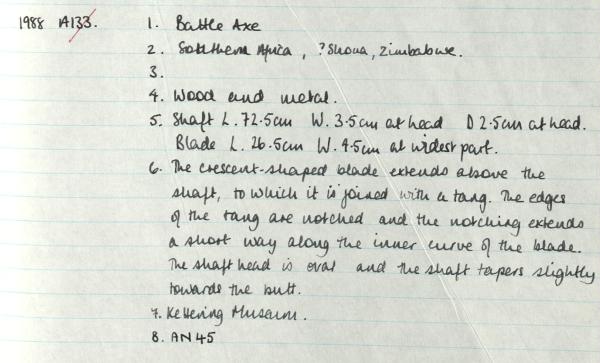 1988 A133. 1. Battle Axe
2. Southern Africa, ?Shona, Zimbabwe.
3.
4. Wood and metal.
5. Shaft L. 72.5cm W. 3.5cm at head D 2.5cm at head.
Blade L. 26.5cm W. 4.5cm at widest part.
6. The crescent-shaped blade extends above the
shaft, to which it is joined with a tang. The edges
of the tang are notched and the notching extends
a short way along the inner curve of the blade.
The shaft head is oval and the shaft tapers slightly
towards the butt.
7. Kettering Museum.
8. AN45